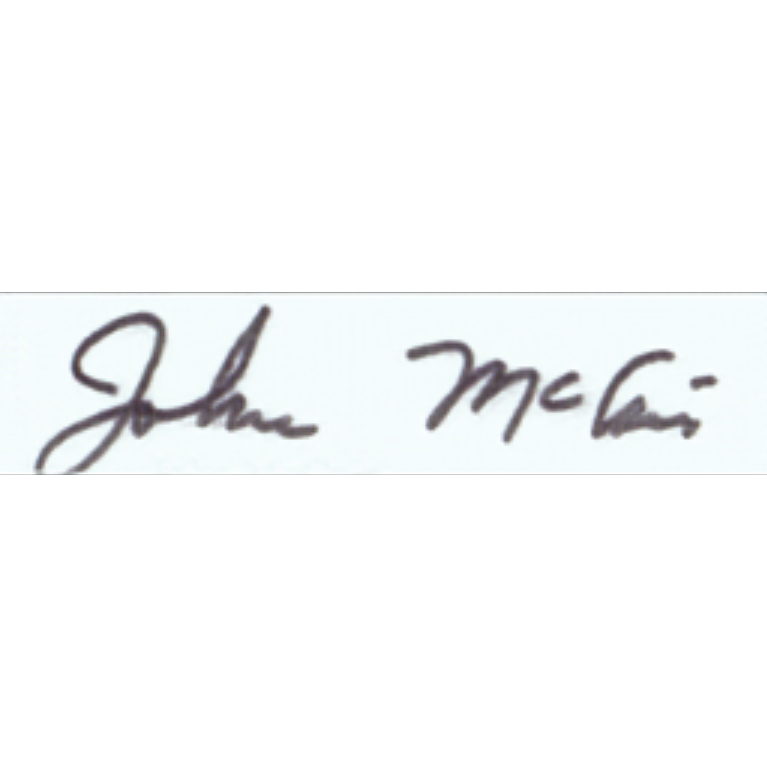 John McCain